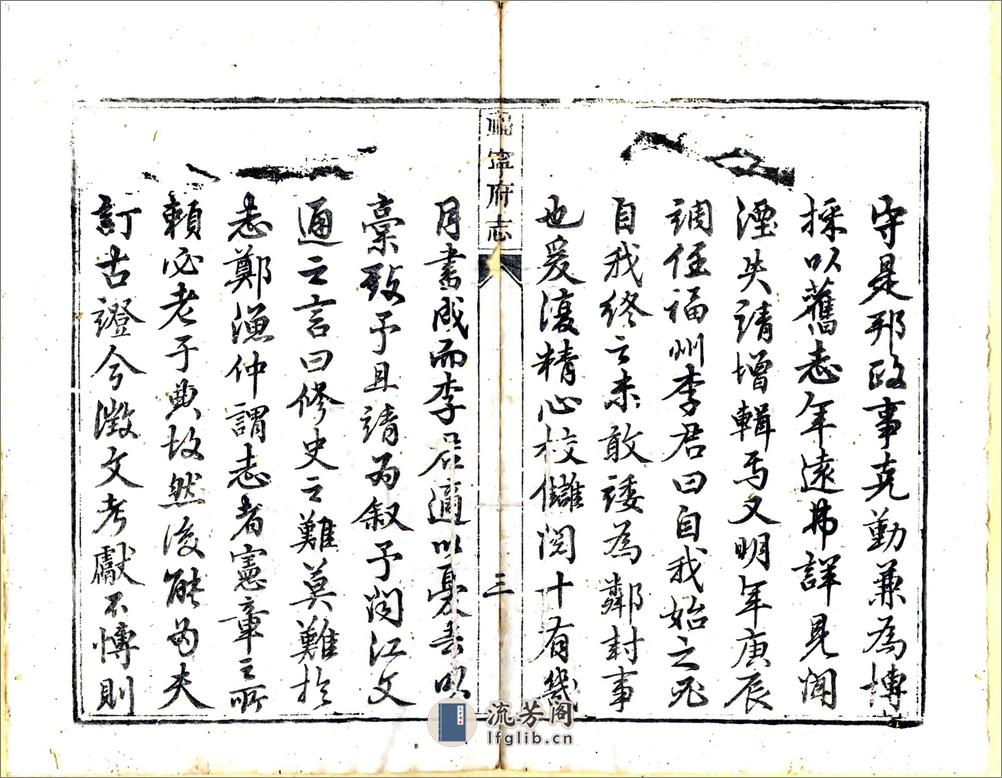 守是邦政事克勤兼為博
採以舊志年遠弗詳見聞
湮失請增輯焉又明年庚辰
調任福州李君曰自我始之非
自我終之未敢諉為鄰封事
也爰復精心校讎閱十有幾
福寧府志
三
月書成而李君適以憂去以
稾致予且請為敘予聞江文
通之言曰修史之難莫難於
志鄭漁仲謂志者憲章之所
賴必老于典故然後能為夫
訂古證今徵文考獻不博則
流芳阁
lfglib.cn